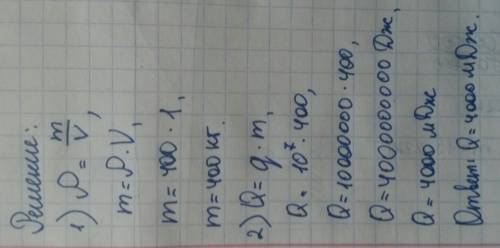 Решение:
1) ρ = m/V,
m = ρ · V,
m = 400 · 1,
m = 400 кг.
2) Q = q · m,
Q = 10⁷ · 400,
Q = 10000000 · 400,
Q = 4000000000 Дж,
Q = 4000 мДж
Ответ: Q = 4000 мДж.